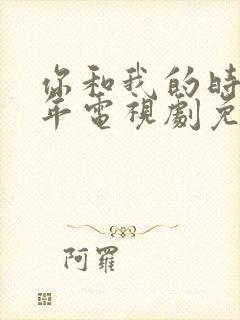 你和我的時
年電視劇免
阿羅